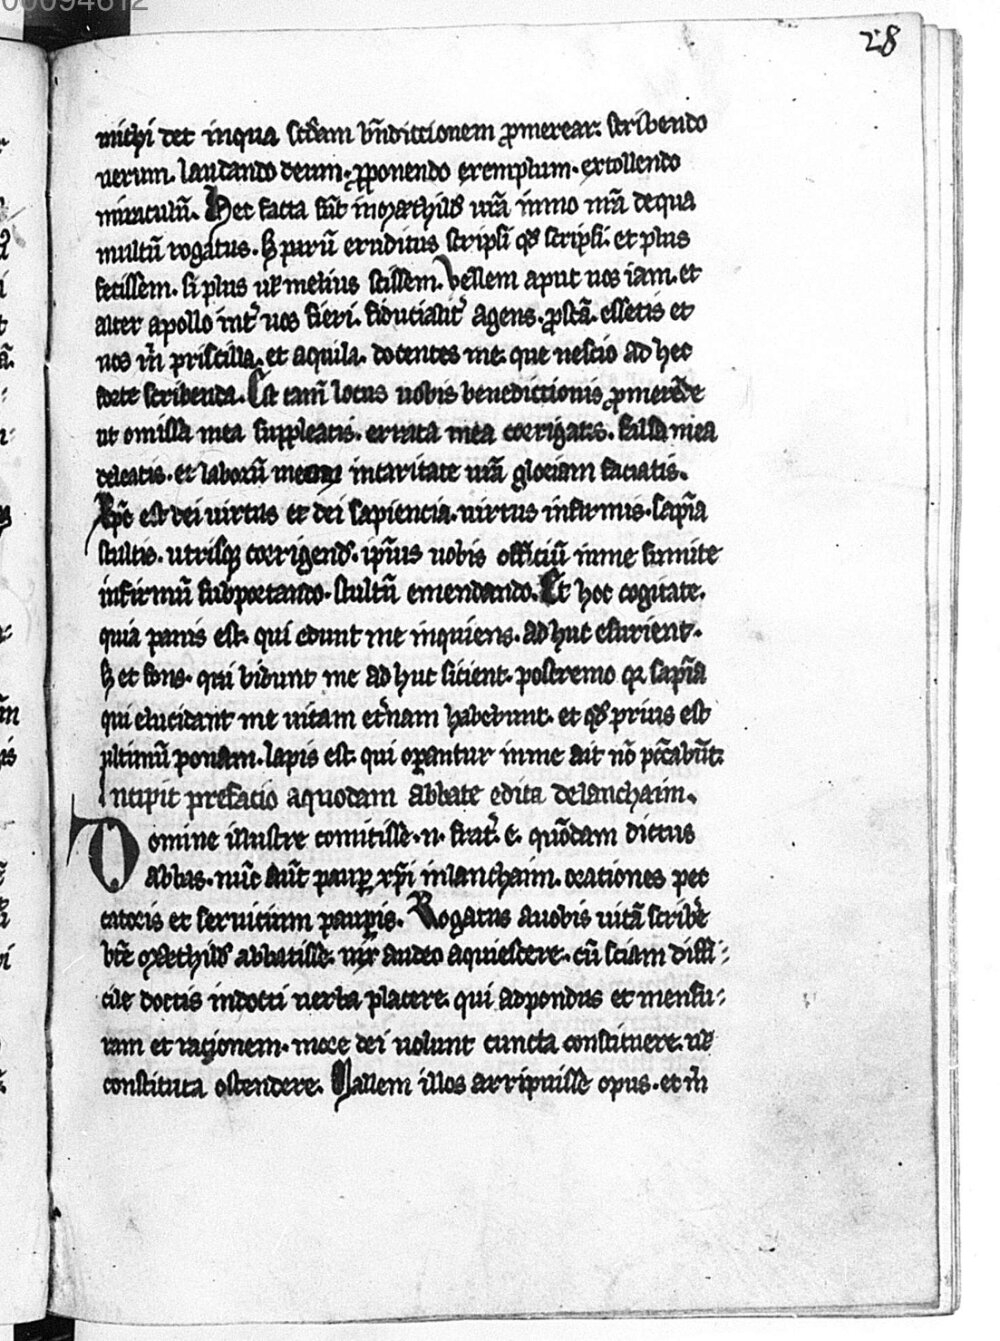 00094612
28
michi det inqua scđam bn̄dictionem ꝓmerear: scribendo
uerum. laudando deum. ꝓponendo exemplum. extollendo
miraculū. Hec facta sūt in mæthild̛ urā immo nrā de qua
multū rogatus. sꝫ parū eruditus scripsi qđ scripsi. et plus
fecissem. si plus ul̛ melius scissem. Vellem aput uos iam. et
alter apollo int̛ uos fieri. fiducialit̛ agens. postā. essetis et
uos m̄ priscilla. et aquila. docentes me. que nescio ad hec
forte scribenda. Est tam̄ locus uobis benedictionis ꝓmerēde
ut omissa mea suppleatis. errata mea corrigatis. falsa mea
deleatis. et laborū meum in caritate urā gloriam faciatis.
Xp̄c est dei uirtus et dei sapiencia. uirtus infirmis. sapīa
stultis. utrisqꝫ corrigend̛. ip̄ius uobis officiū in me sumite
infirmū subportando. stultū emendando. Et hoc cogitate.
quia panis est. qui edunt me inquiens. ad huc esurient.
sꝫ et fons. qui bibunt me ad huc sicient. postremo qꝛ sapīa
qui elucidant me uitam et̛nam habebunt. et qđ prius est
ultimū ponam. lapis est. qui oꝑantur in me ait nō pc̄cabūt.
Incipit prefacio a quodam abbate edita de lanchaim.
Domine illustre comitisse. n. frat̛. e. quōdam dictus
abbas. nūc aūt pauꝑ xp̄i in lanchaim. orationes pec
catoris et seruitium pauꝑis. Rogatus a uobis uitā scrib̛e
bt̄e mæthild̛ abbatisse. uix audeo aquiescere. cū sciam diffi
cile doctis indocti uerba placere. qui ad pondus et mensu
ram et racionem. more dei uolunt cuncta constituere. ul̛
constituta ostendere. Mallem illos arripuisse opus. et m̄